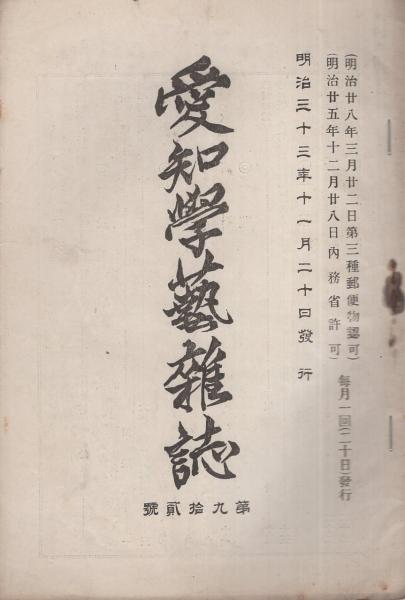 (明治廿八年三月廿二日第三種郵便物認可)
(明治廿五年十二月廿八日內務省許可)
每月一回(二十日)發行
明治三十三年十一月二十日發行
愛知學藝雜誌
第九拾貳號